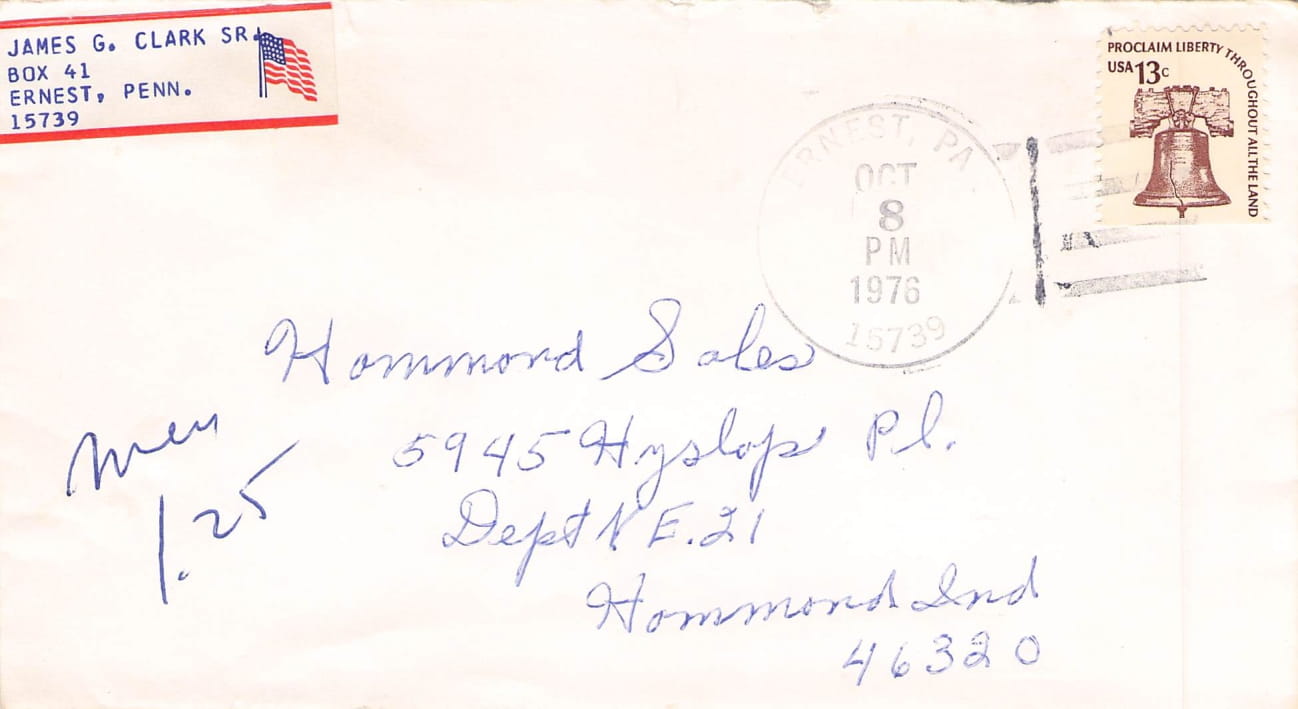 JAMES G. CLARK SR.
BOX 41
ERNEST, PENN.
15739
PROCLAIM LIBERTY THROUGHOUT ALL THE LAND
USA 13c
ERNEST, PA.
OCT
8
PM
1976
15739
Hammond Sales
5945 Hyslop Pl.
Dept N E.21
Hammond Ind
46320
1.25